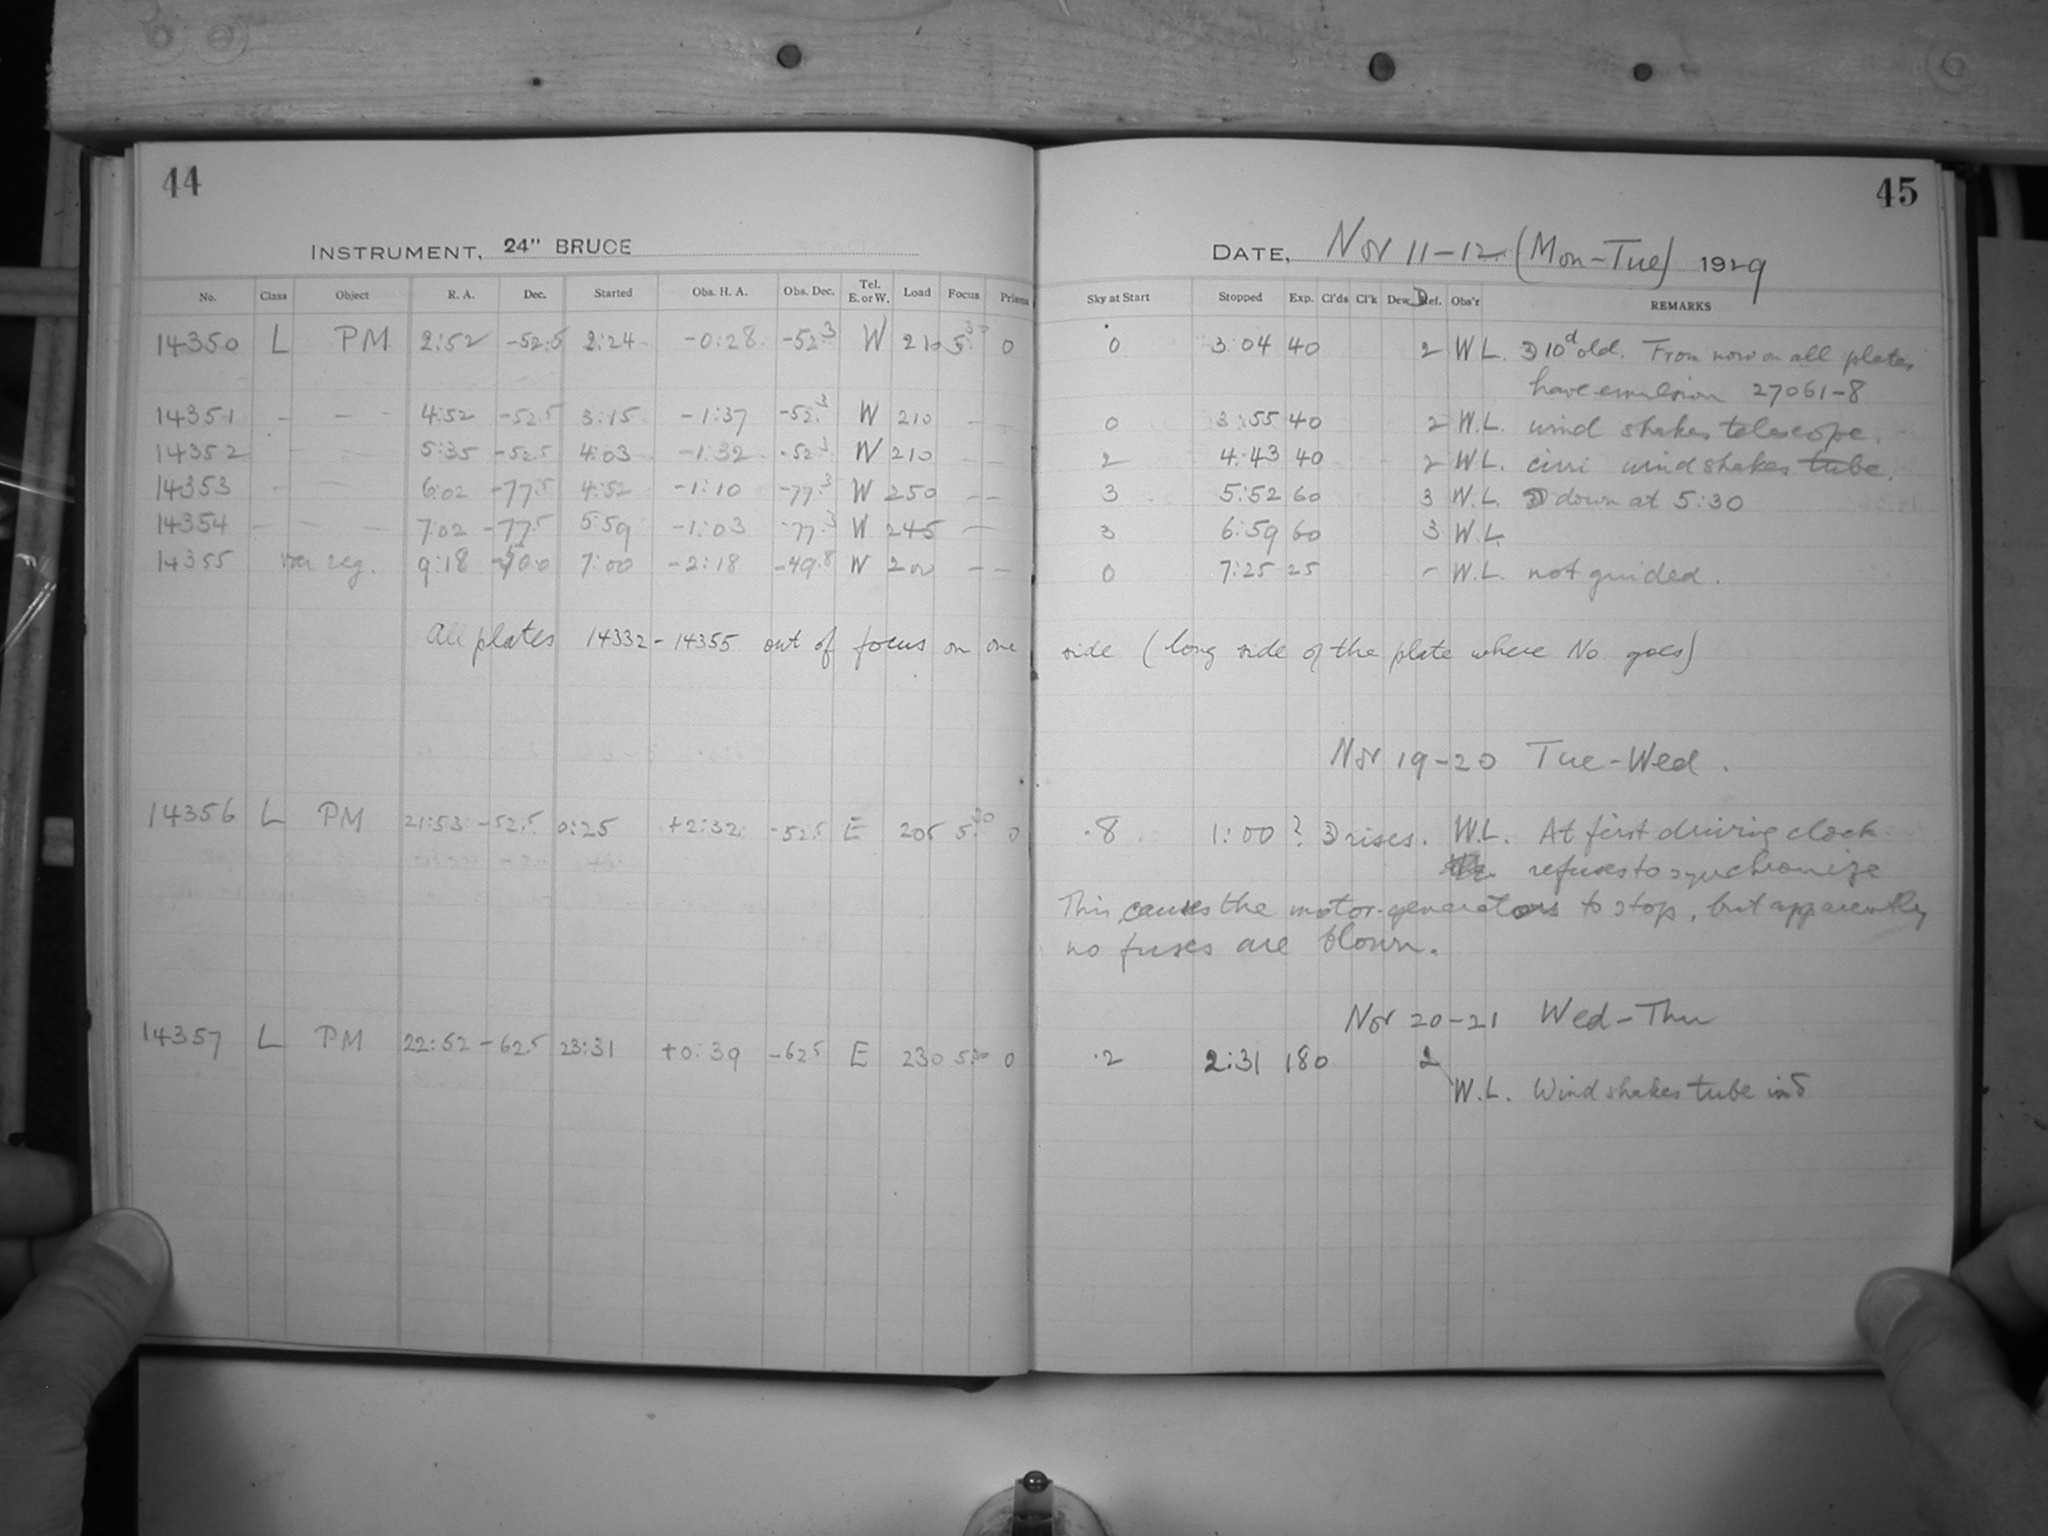 44
INSTRUMENT, 24" BRUCE
No. Class Object R. A. Dec. Started Obs. H. A. Obs. Dec. Tel. E. or W. Load Focus Prisms
14350 L PM 2:52 -52.5 2:24 -0:28 -52.3 W 210 5.30 0
14351 - - - 4:52 -52.5 3:15 -1:37 -52.3 W 210 - -
14352 - - 5:35 -52.5 4:03 -1:32 -52.3 W 210 - -
14353 - - 6:02 -77.5 4:52 -1:10 -77.3 W 250 - -
14354 - - - 7:02 -77.5 5:59 -1:03 -77.3 W 245 -
14355 var reg. 9:18 7:00 -2:18 -49.8 W 200 - -
All plates 14332-14355 out of focus on one
14356 L PM 21:53 -52.5 0:25 +2:32 -52.5 E 205 5.30 0
14357 L PM 22:52 -62.5 23:31 +0:39 -62.5 E 230 5.30 0
45
DATE, Nov 11-12 (Mon-Tue) 1929
Sky at Start Stopped Exp. Cl'ds Cl'k Dew Def. Obs'r REMARKS
0 3:04 40 2 W L. ☽ 10d old. From now on all plates
have emulsion 27061-8
0 3:55 40 2 W.L. wind shakes telescope.
2 4:43 40 2 W L. cirri wind shakes tube.
3 5:52 60 3 W.L. ☽ down at 5:30
3 6:59 60 3 W.L
0 7:25 25 - W.L. not guided.
side (long side of the plate where No goes)
Nov 19-20 Tue-Wed.
.8 1:00? ☽ rises. W.L. At first driving clock
refuses to synchronize
This causes the motor-generators to stop, but apparently
no fuses are blown.
Nov 20-21 Wed-Thu
.2 2:31 180 2
W.L. Wind shakes tube in δ